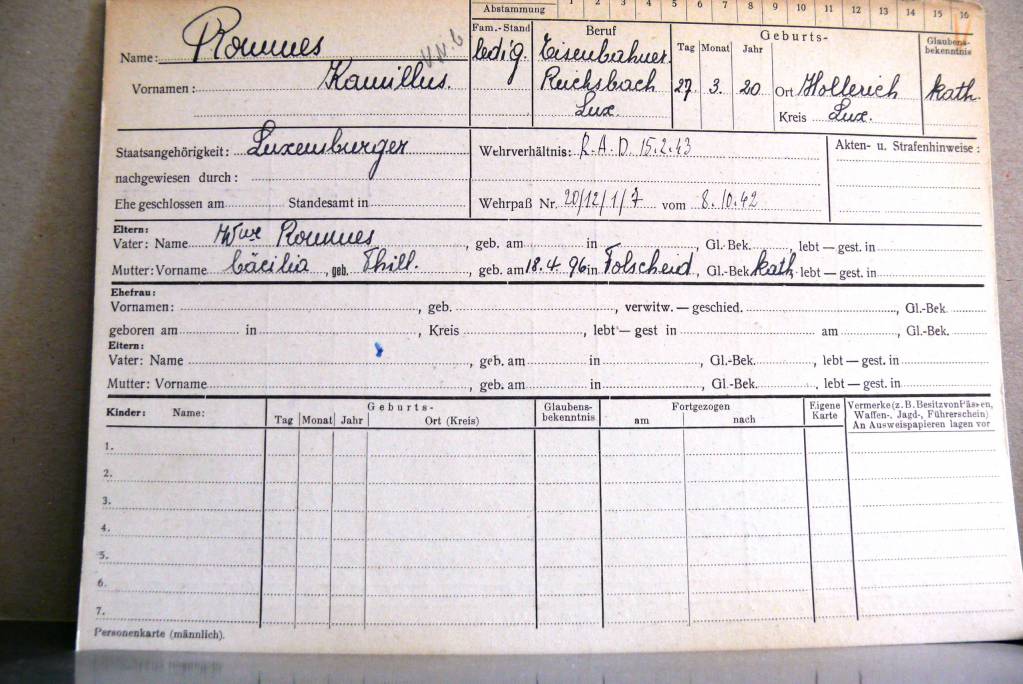 Abstammung 1 2 3 4 5 6 7 8 9 10 11 12 13 14 15 16
Name: Rommes
Vornamen: Kamillus.
Fam.-Stand
ledig.
Beruf
Eisenbahner
Reichsbach
Lux.
Geburts-
Tag Monat Jahr
27 3. 20 Ort Hollerich
Kreis Lux.
Glaubens-
bekenntnis
kath.
Staatsangehörigkeit: Luxemburger
nachgewiesen durch:
Ehe geschlossen am Standesamt in
Wehrverhältnis: R.A.D. 15.2.43
Wehrpaß Nr. 20/12/1/7 vom 8.10.42
Akten- u. Strafenhinweise:
Eltern:
Vater: Name Wwe Rommes, geb. am in, Gl.-Bek., lebt — gest. in
Mutter: Vorname Cäcilia, geb. Thill., geb. am 18.4.96 in Folscheid, Gl.-Bek. kath. lebt — gest. in
Ehefrau:
Vornamen:, geb., verwitw. — geschied., Gl.-Bek.
geboren am in, Kreis, lebt — gest in am, Gl.-Bek.
Eltern:
Vater: Name, geb. am in, Gl.-Bek., lebt — gest. in
Mutter: Vorname, geb. am in, Gl.-Bek., lebt — gest. in
Kinder: Name:
Geburts-
Tag Monat Jahr Ort (Kreis)
Glaubens-
bekenntnis
Fortgezogen
am nach
Eigene
Karte
Vermerke (z. B. Besitz von Pässen,
Waffen-, Jagd-, Führerschein)
An Ausweispapieren lagen vor
1.
2.
3.
4.
5.
6.
7.
Personenkarte (männlich).